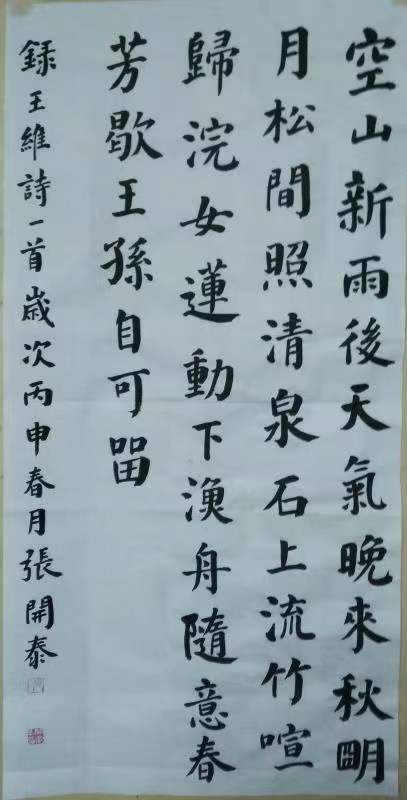 空山新雨後天氣晚來秋明
月松間照清泉石上流竹喧
歸浣女蓮動下漁舟隨意春
芳歇王孫自可留
録王維詩一首歲次丙申春月張開泰